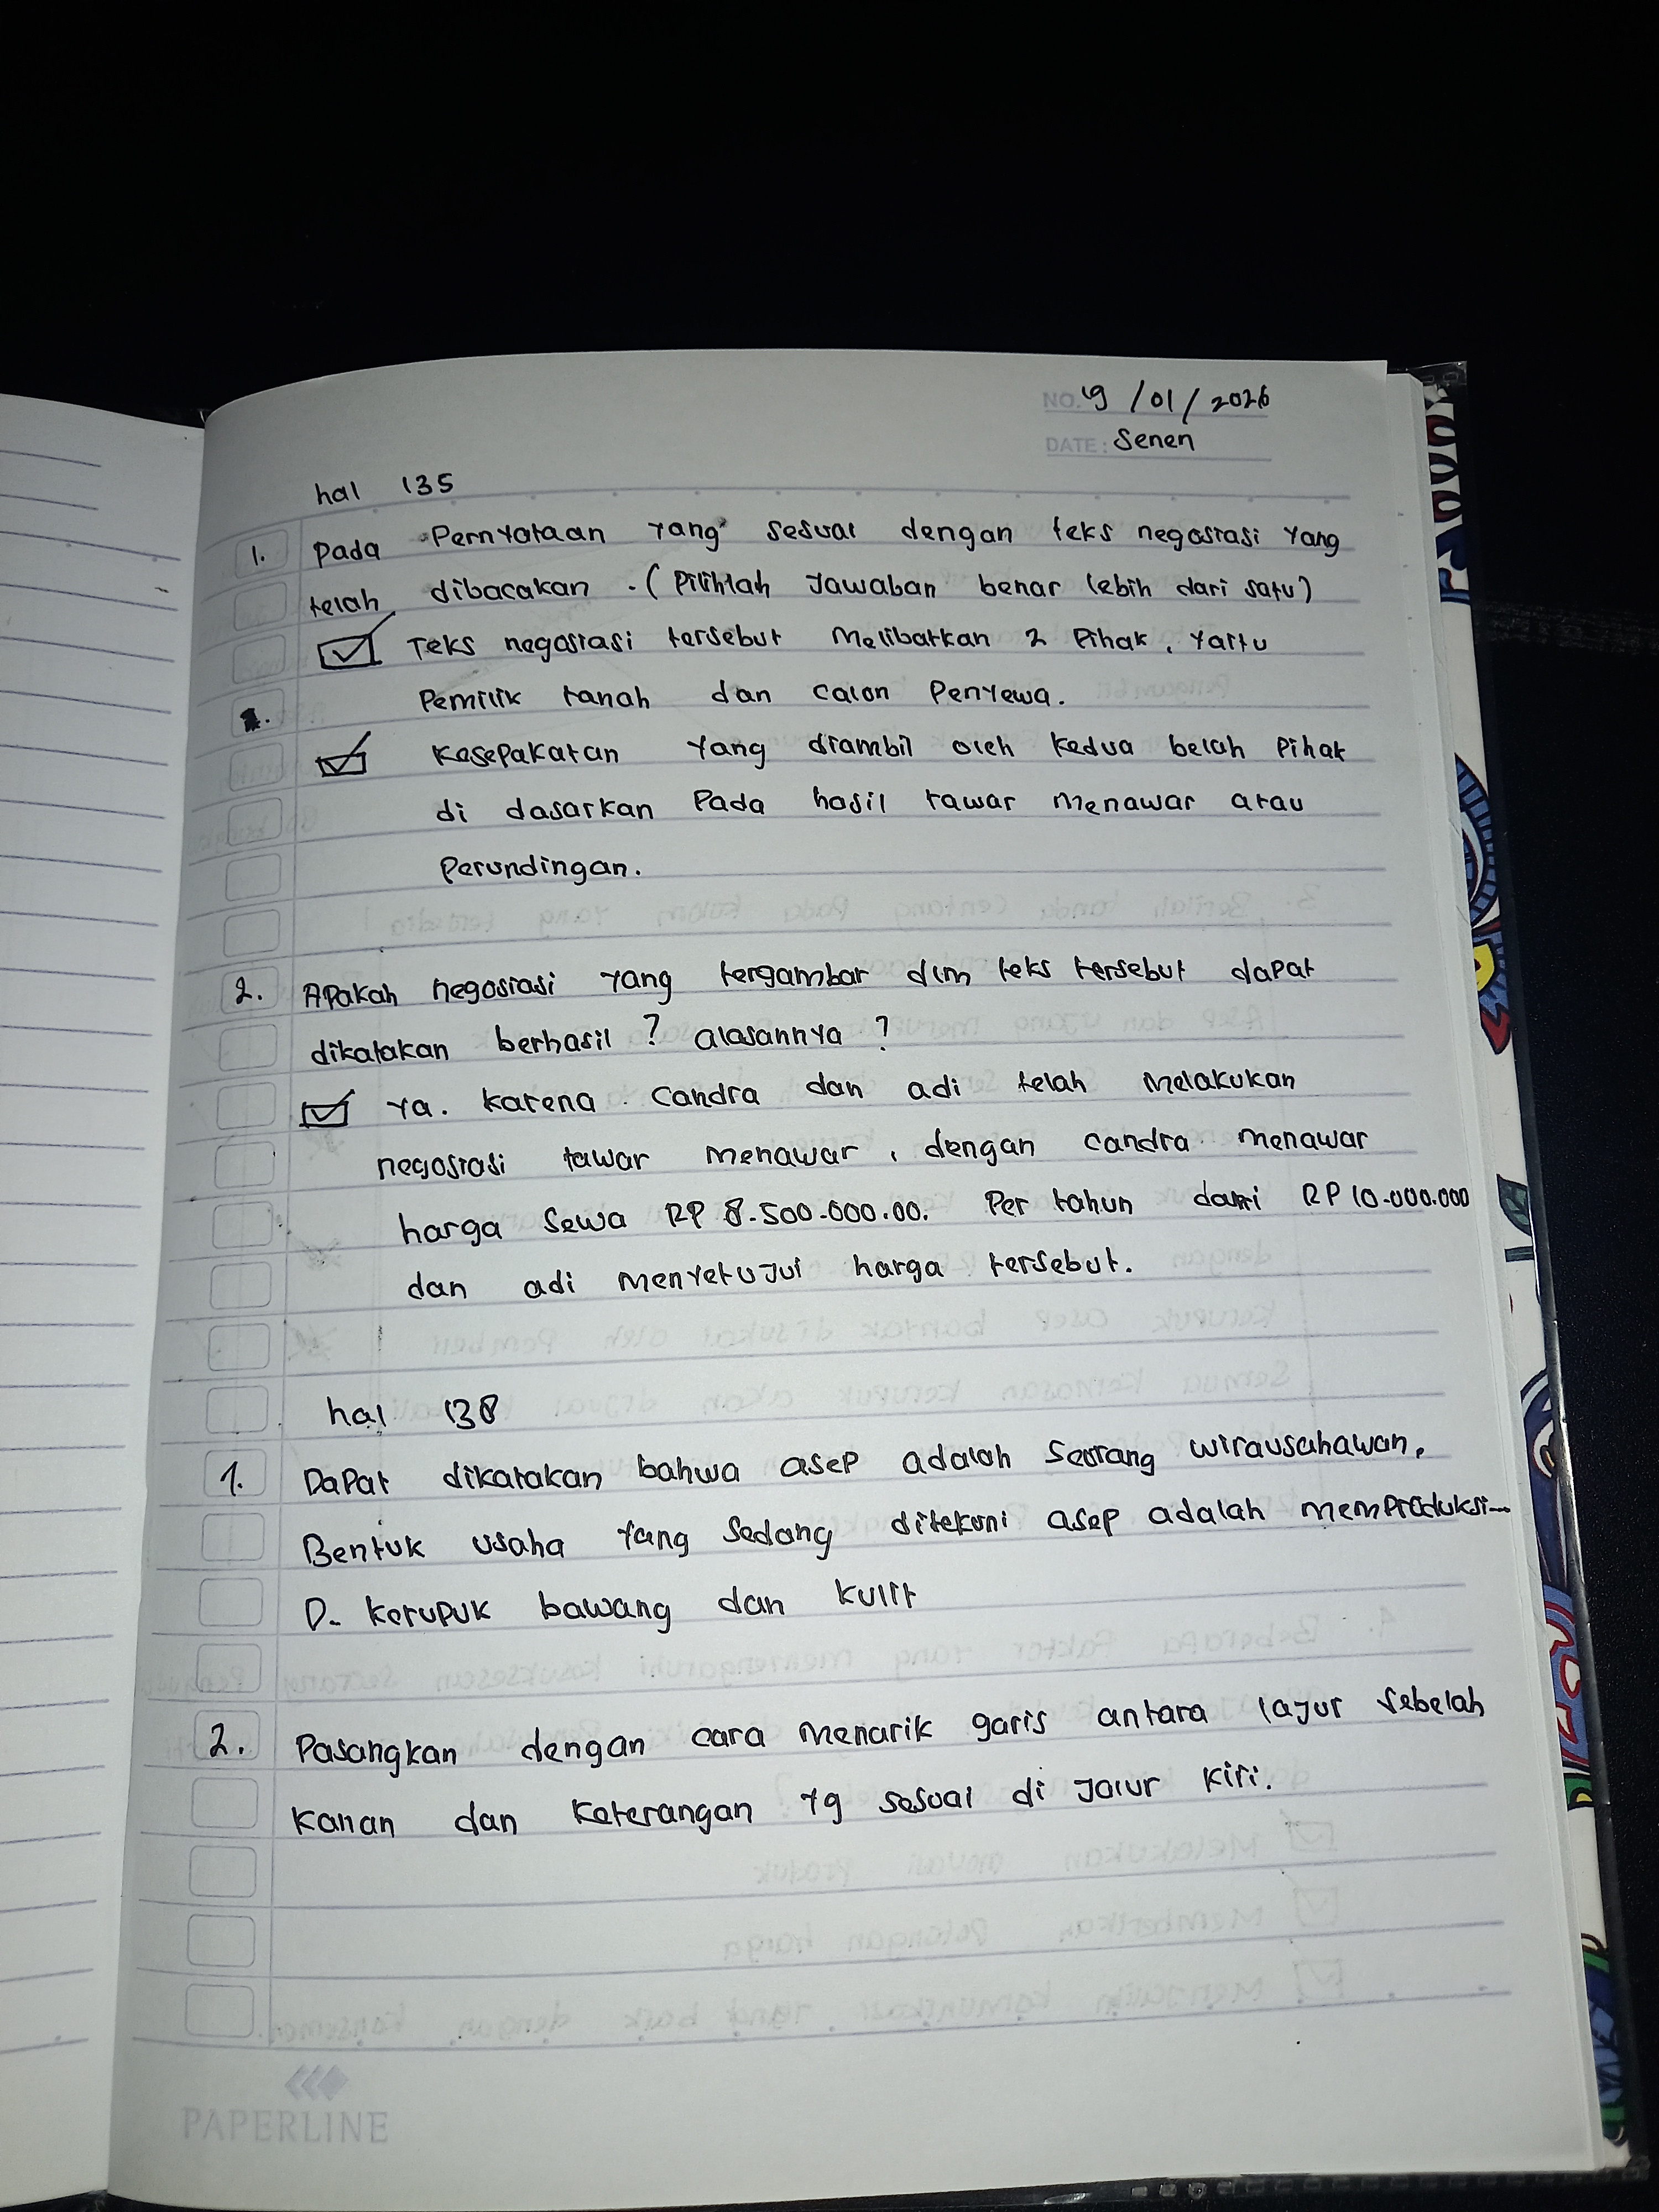 NO. 19 / 01 / 2026
DATE: Senen
hal 135
1. Pada Pernyataan yang sesuai dengan teks negosiasi yang
telah dibacakan. (Pilihlah Jawaban benar lebih dari satu)
Teks negosiasi tersebut Melibatkan 2 Pihak, yaitu
Pemilik tanah dan calon Penyewa.
Kesepakatan yang diambil oleh kedua belah Pihak
di dasarkan Pada hasil tawar menawar atau
Perundingan.
2. Apakah negosiasi yang tergambar dlm teks tersebut dapat
dikatakan berhasil? alasannya?
Ya. Karena Candra dan adi telah Melakukan
negosiasi tawar menawar, dengan candra menawar
harga Sewa RP 8.500.000.00. Per tahun dari RP 10.000.000
dan adi menyetujui harga tersebut.
hal 138
1. Dapat dikatakan bahwa asep adalah Seorang wirausahawan.
Bentuk usaha yang Sedang ditekuni asep adalah memproduksi...
D. Kerupuk bawang dan kulit
2. Pasangkan dengan cara menarik garis antara lajur sebelah
Kanan dan Keterangan yg sesuai di Jalur Kiri.
PAPERLINE